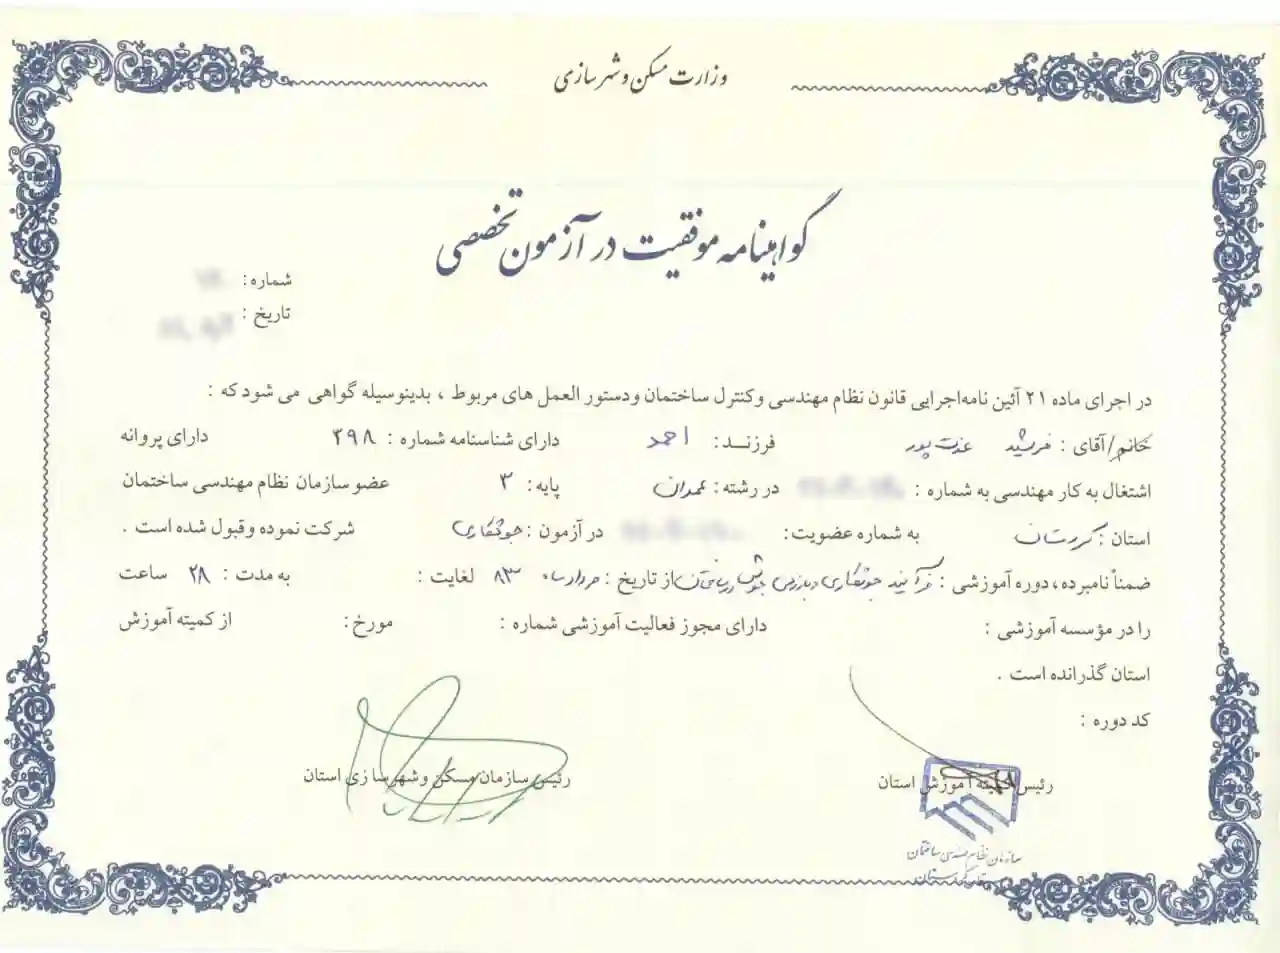 وزارت مسکن و شهرسازی
گواهینامه موفقیت در آزمون تخصصی
شماره :
تاریخ :
در اجرای ماده ۲۱ آئین نامه اجرایی قانون نظام مهندسی و کنترل ساختمان و دستور العمل های مربوط ، بدینوسیله گواهی می شود که :
خانم/آقای : فرشید عزت پور فرزند : احمد دارای شناسنامه شماره : ۳۹۸ دارای پروانه
اشتغال به کار مهندسی به شماره : در رشته : عمران پایه : ۳ عضو سازمان نظام مهندسی ساختمان
استان : کردستان به شماره عضویت : در آزمون : جوشکاری شرکت نموده و قبول شده است .
ضمناً نامبرده ، دوره آموزشی : فرآیند جوشکاری و بازرسی جوش در ساختمان از تاریخ : مرداد ماه ۸۳ لغایت : به مدت : ۲۸ ساعت
را در مؤسسه آموزشی : دارای مجوز فعالیت آموزشی شماره : مورخ : از کمیته آموزش
استان گذرانده است .
کد دوره :
رئیس کمیته آموزش استان رئیس سازمان مسکن و شهرسازی استان
سازمان نظام مهندسی ساختمان
استان کردستان